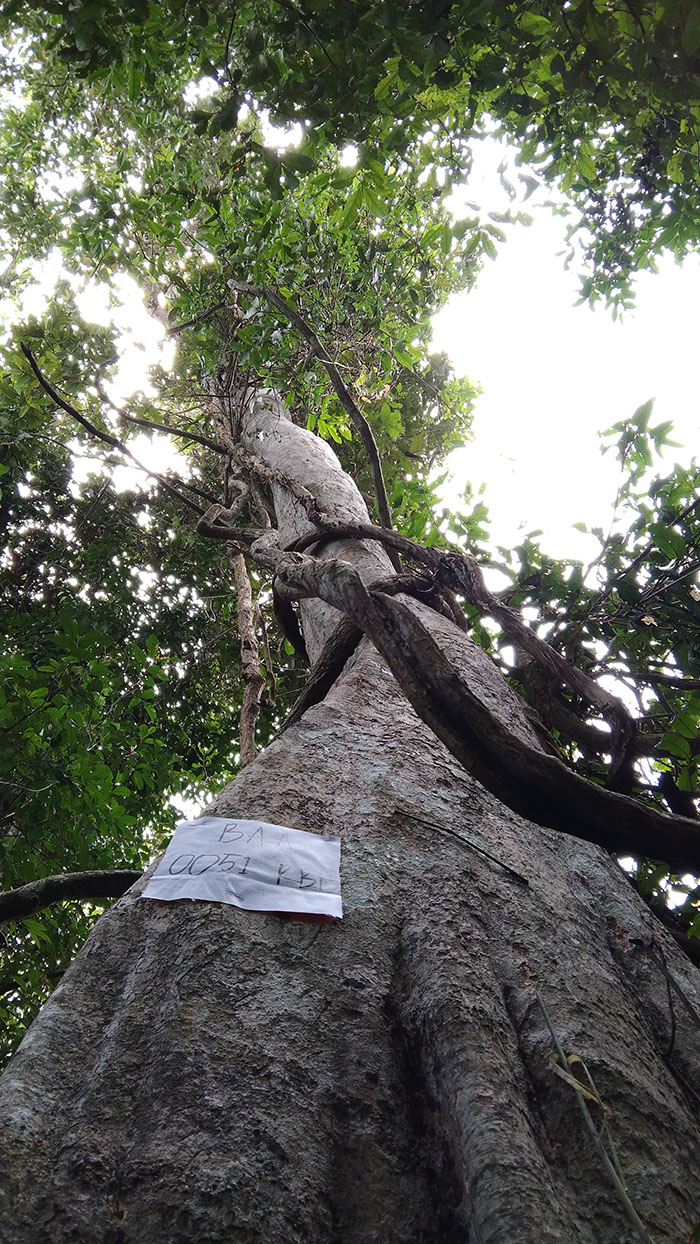 BAA
0051 PBL